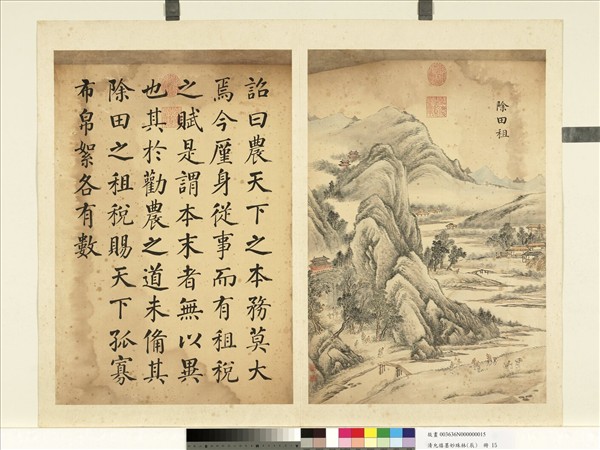 除田租
詔曰農天下之本務莫大
焉今廑身從事而有租稅
之賦是謂本末者無以異
也其於勸農之道未備其
除田之租稅賜天下孤寡
布帛絮各有數
故畫 003636N000000015